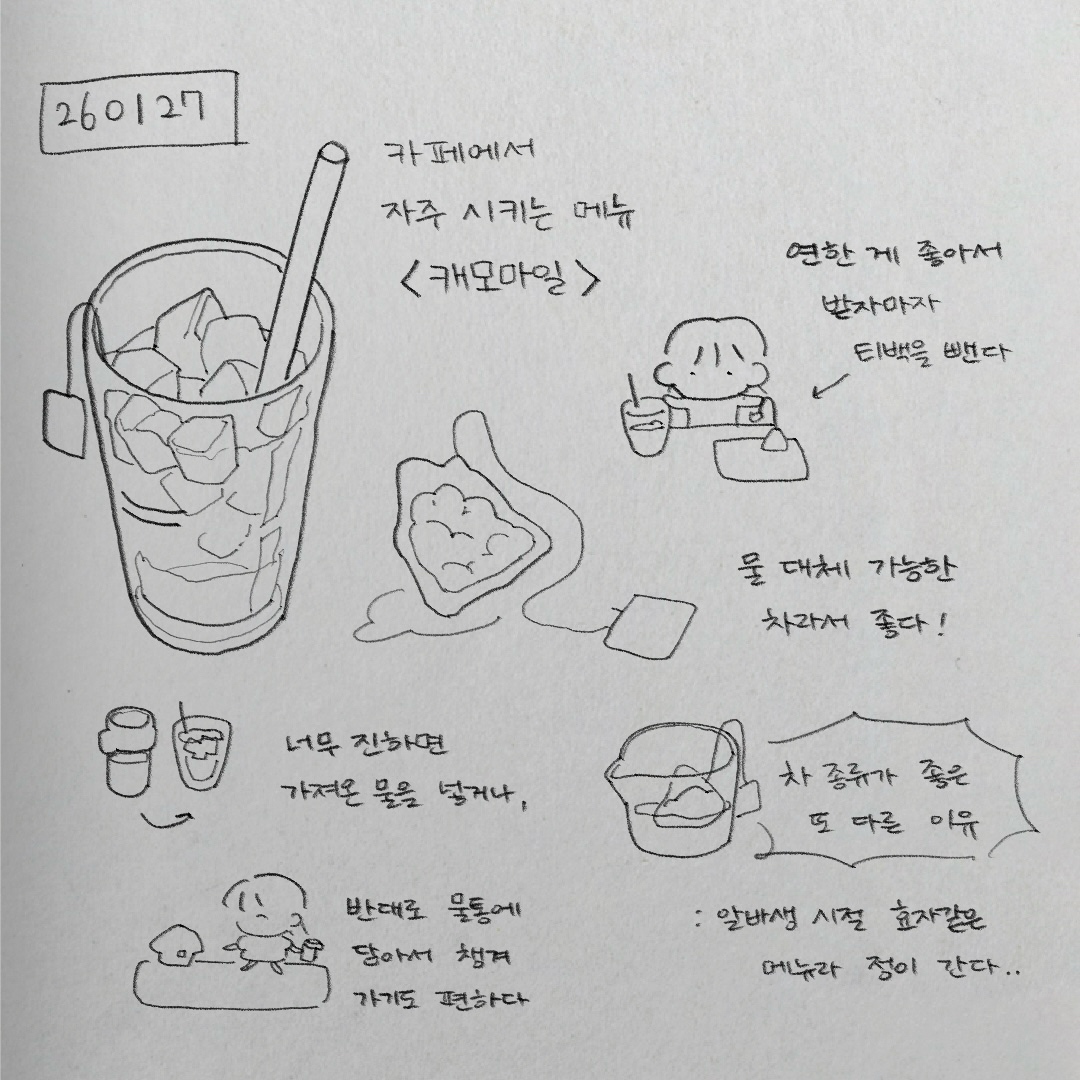 260127
카페에서
자주 시키는 메뉴
<캐모마일>
연한 게 좋아서
받자마자
티백을 뺀다
물 대체 가능한
차라서 좋다!
너무 진하면
가져온 물을 넣거나,
반대로 물통에
담아서 챙겨
가기도 편하다
차 종류가 좋은
또 다른 이유
: 알바생 시절 효자같은
메뉴라 정이 간다..